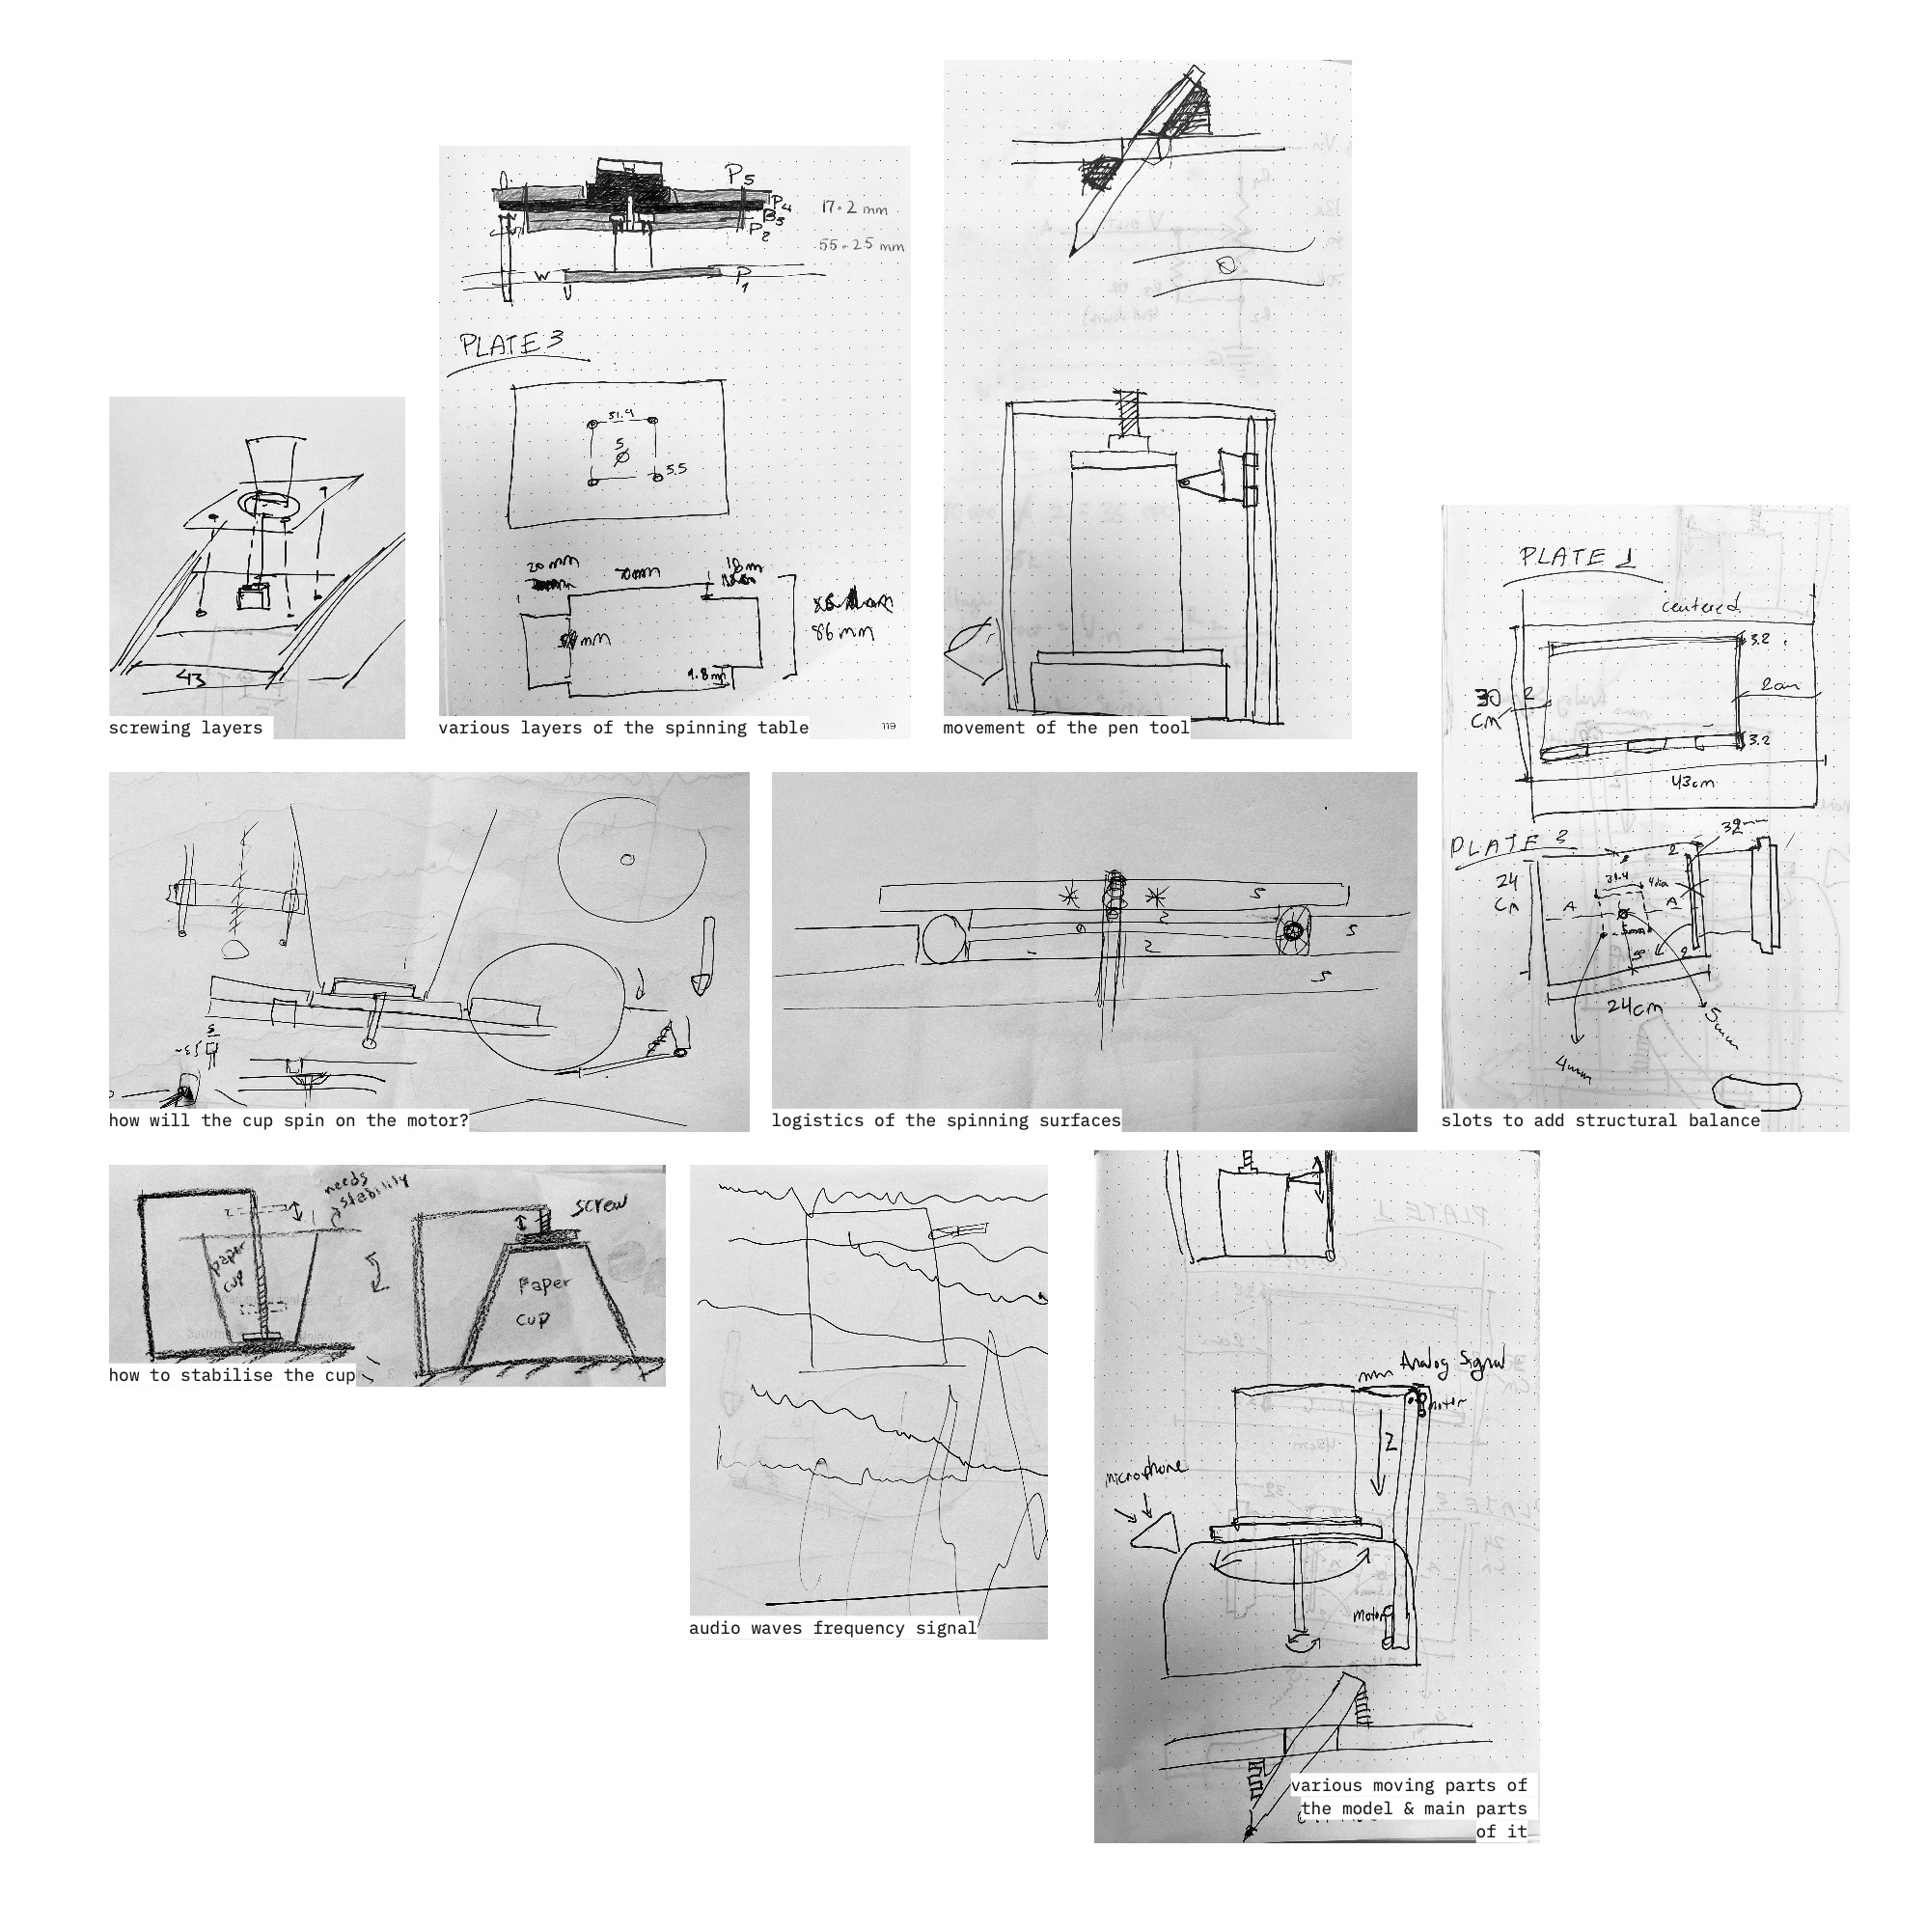 43
screwing layers
P5
P4
P2
P1
W
17.2 mm
55.25 mm
PLATE 3
31.4
5
Ø
5.5
20 mm
70mm
18m
mm
86 mm
various layers of the spinning table
119
movement of the pen tool
PLATE 1
centered
3.2
30
cm
2
2cm
3.2
43cm
24
cm
32mm
2
31.4
A
A
5mm
2
24cm
5mm
4mm
slots to add structural balance
how will the cup spin on the motor?
S
2
S
2
S
logistics of the spinning surfaces
needs
stability
paper
cup
screw
Paper
cup
how to stabilise the cup
audio waves frequency signal
Analog Signal
motor
Z
microphone
motor
various moving parts of
the model & main parts
of it